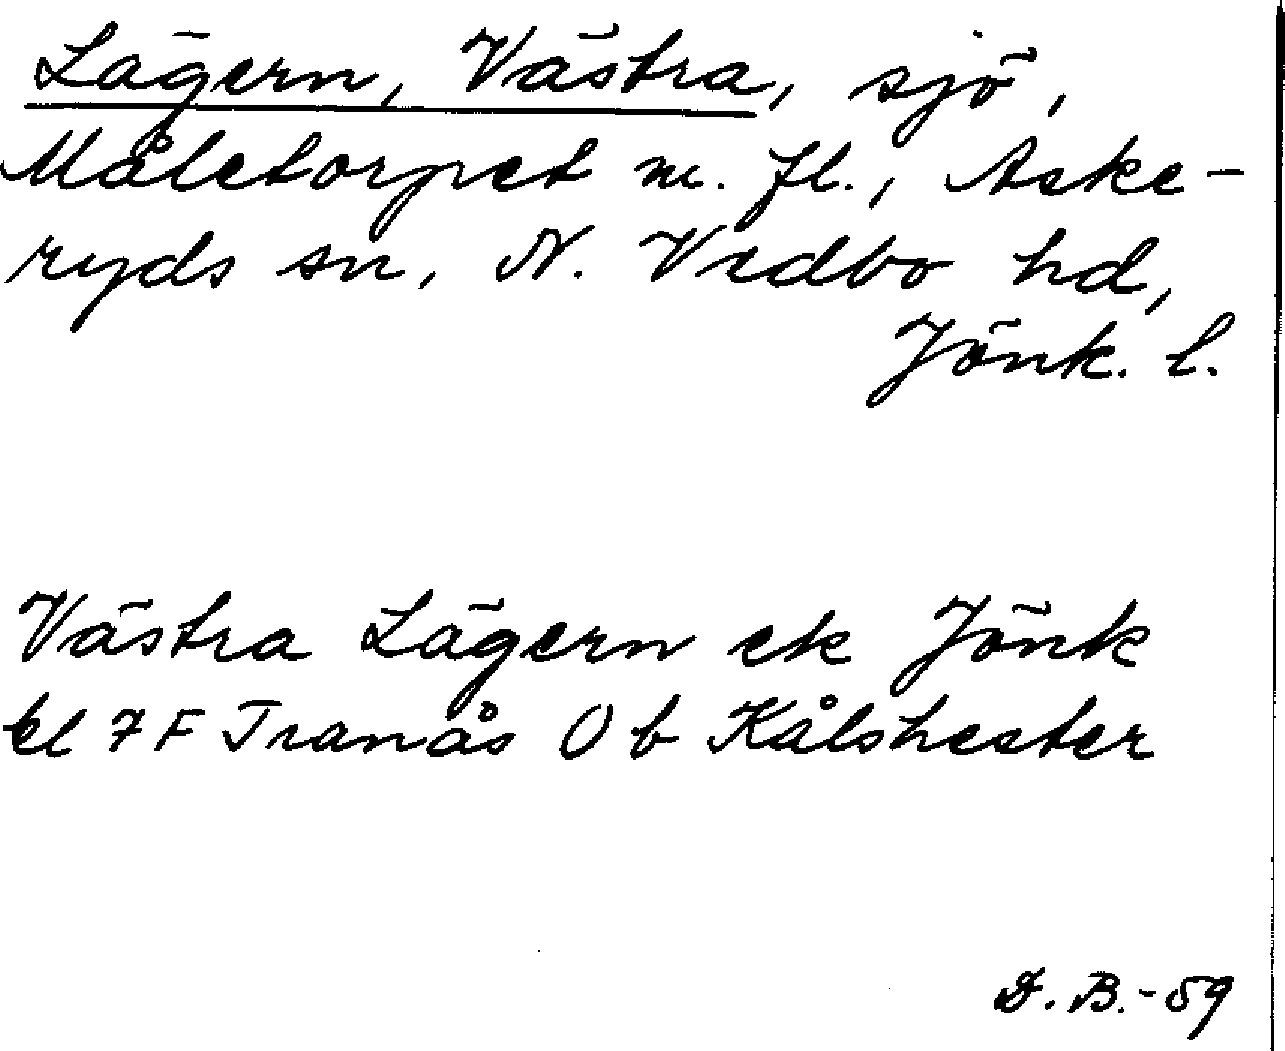 Lägern, Västra, sjö,
Måletorpet m. fl., Aske-
ryds sn, N. Vedbo hd,
Jönk. l.
Västra Lägern ek Jönk
bl 7 F Tranås O b Kålshester
D. B. - 59